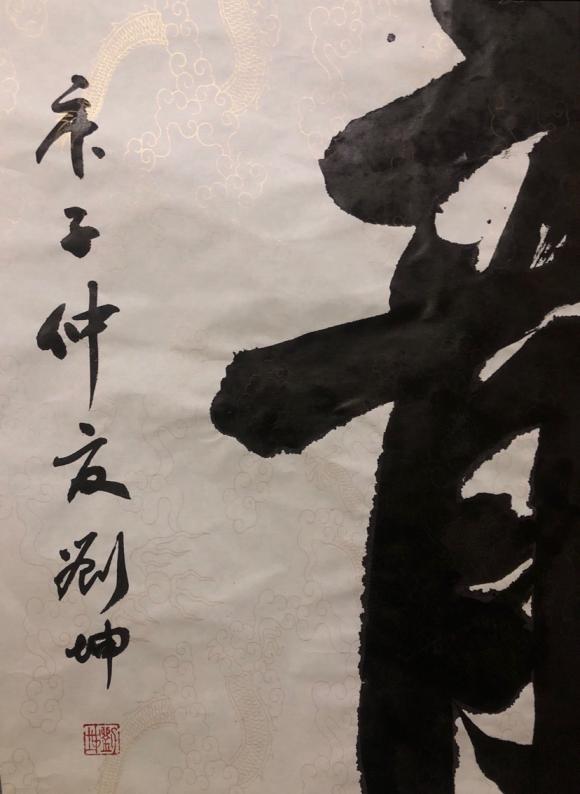 庚子仲夏劉坤
劉坤